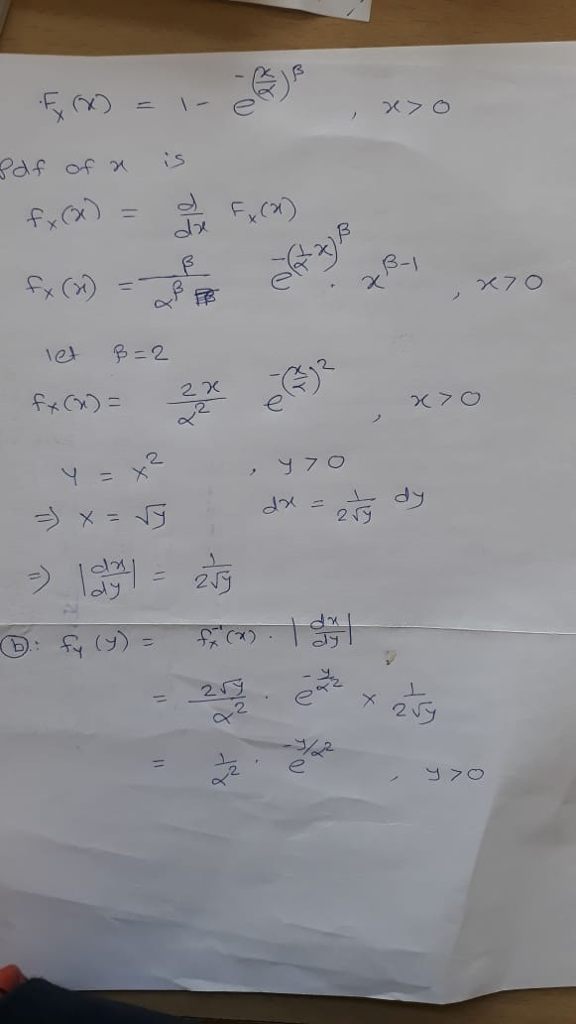 F_X(x) = 1 - e^{-(x/α)^β} , x > 0
Pdf of x is
f_X(x) = d/dx F_X(x)
f_X(x) = β/α^β e^{-(1/α x)^β} . x^{β-1} , x > 0
let β = 2
f_X(x) = 2x/α^2 e^{-(x/α)^2} , x > 0
Y = X^2 , y > 0
⇒ X = √y dx = 1/(2√y) dy
⇒ |dx/dy| = 1/(2√y)
(b): f_Y(y) = f_X^{-1}(x) . |dx/dy|
= 2√y/α^2 . e^{-y/α^2} × 1/(2√y)
= 1/α^2 . e^{-y/α^2} , y > 0